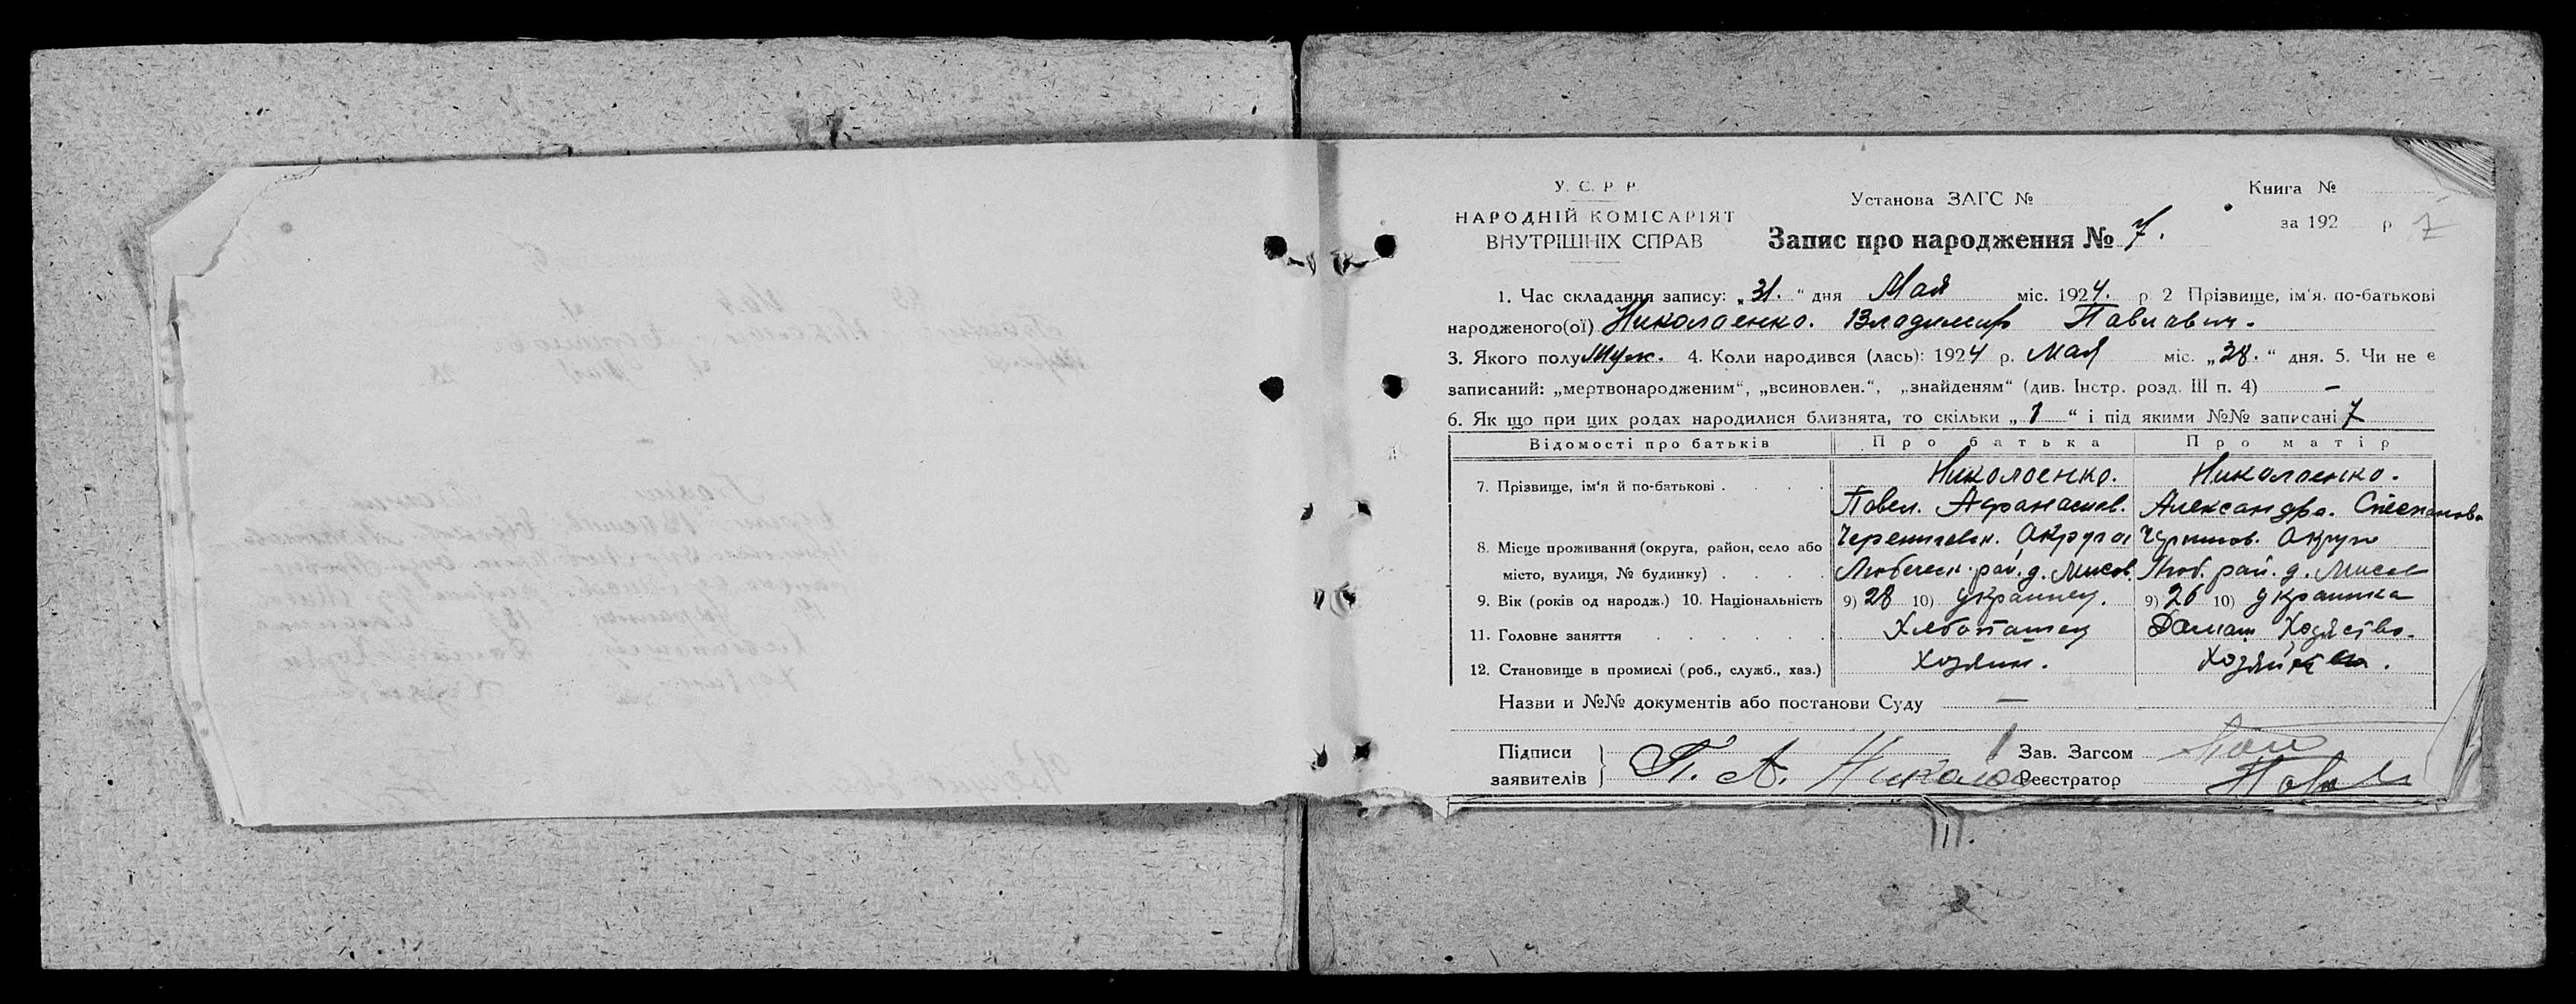 У. С. Р. Р.
НАРОДНІЙ КОМІСАРІЯТ
ВНУТРІШНІХ СПРАВ
Установа ЗАГС №
Запис про народження № 7.
Книга №
за 192 р 7
1. Час складання запису: „31.“ дня Мая міс. 1924. р. 2 Прізвище, ім‘я, по-батькові
народженого(ої) Николаенко. Владимир Павлович.
3. Якого полу Муж. 4. Коли народився (лась): 1924 р. Мая міс. „28.“ дня. 5. Чи не є
записаний: „мертвонародженим“, „всиновлен.“, „знайденям“ (див. Інстр. розд. III п. 4) —
6. Як що при цих родах народилися близнята, то скільки „1“ і під якими №№ записані 7
Відомості про батьків Про батька Про матір
7. Прізвище, ім‘я й по-батькові . . . . Николаенко. Николаенко.
Павел. Афанасиев. Александра. Степанова
8. Місце проживання (округа, район, село або Округа Округи
місто, вулиця, № будинку) . . . . рай. д. Люб. рай. д.
9. Вік (років од народж.) 10. Національність 9) 28 10) украинец. 9) 26 10) украинка
11. Головне заняття . . . . . . Хлебопашец Домаш Хозяство.
12. Становище в промислі (роб., служб., хаз.) Хозяин.
Назви и №№ документів або постанови Суду —
Підписи
заявителів
П. А.
Зав. Загсом
Реєстратор